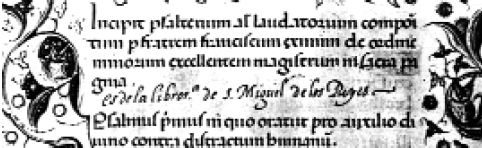 Incipit psalterium al' laudatorium compoi
tum p fratrem franciscum eximini de ordine
minorum excellentem magistrum in sacra pa
gina
es de la librer.ª de S. Miguel de los Reyes
Psalmus p̄mus in quo oratur pro auxilio di
uino contra distractum humanū.